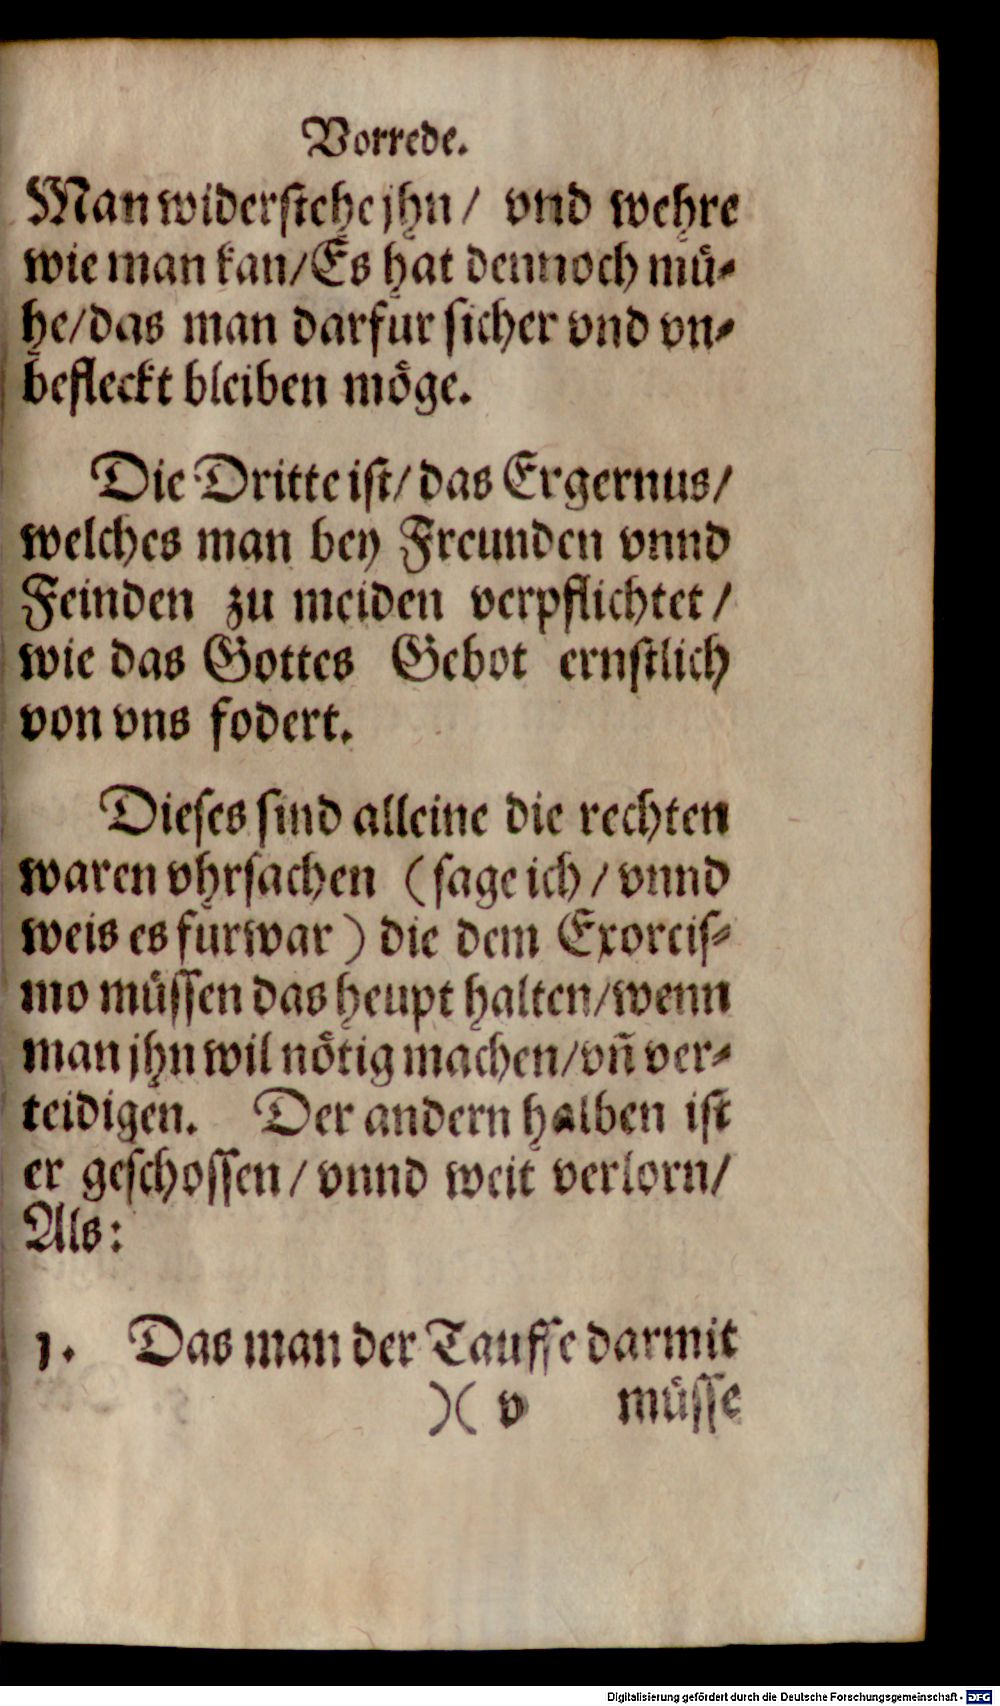 Vorrede.
Man widerstehe jhn / vnd wehre
wie man kan/Es hat dennoch mü-
he/das man darfur sicher vnd vn-
befleckt bleiben möge.
Die Dritte ist/ das Ergernus/
welches man bey Freunden vnnd
Feinden zu meiden verpflichtet /
wie das Gottes Gebot ernstlich
von vns fodert.
Dieses sind alleine die rechten
waren vhrsachen (sage ich / vnnd
weis es furwar) die dem Exorcis-
mo müssen das heupt halten/wenn
man jhn wil nötig machen/vñ ver-
teidigen. Der andern halben ist
er geschossen / vnnd weit verlorn/
Als:
1. Das man der Tauffe darmit
)( v müsse
Digitalisierung gefördert durch die Deutsche Forschungsgemeinschaft - DFG